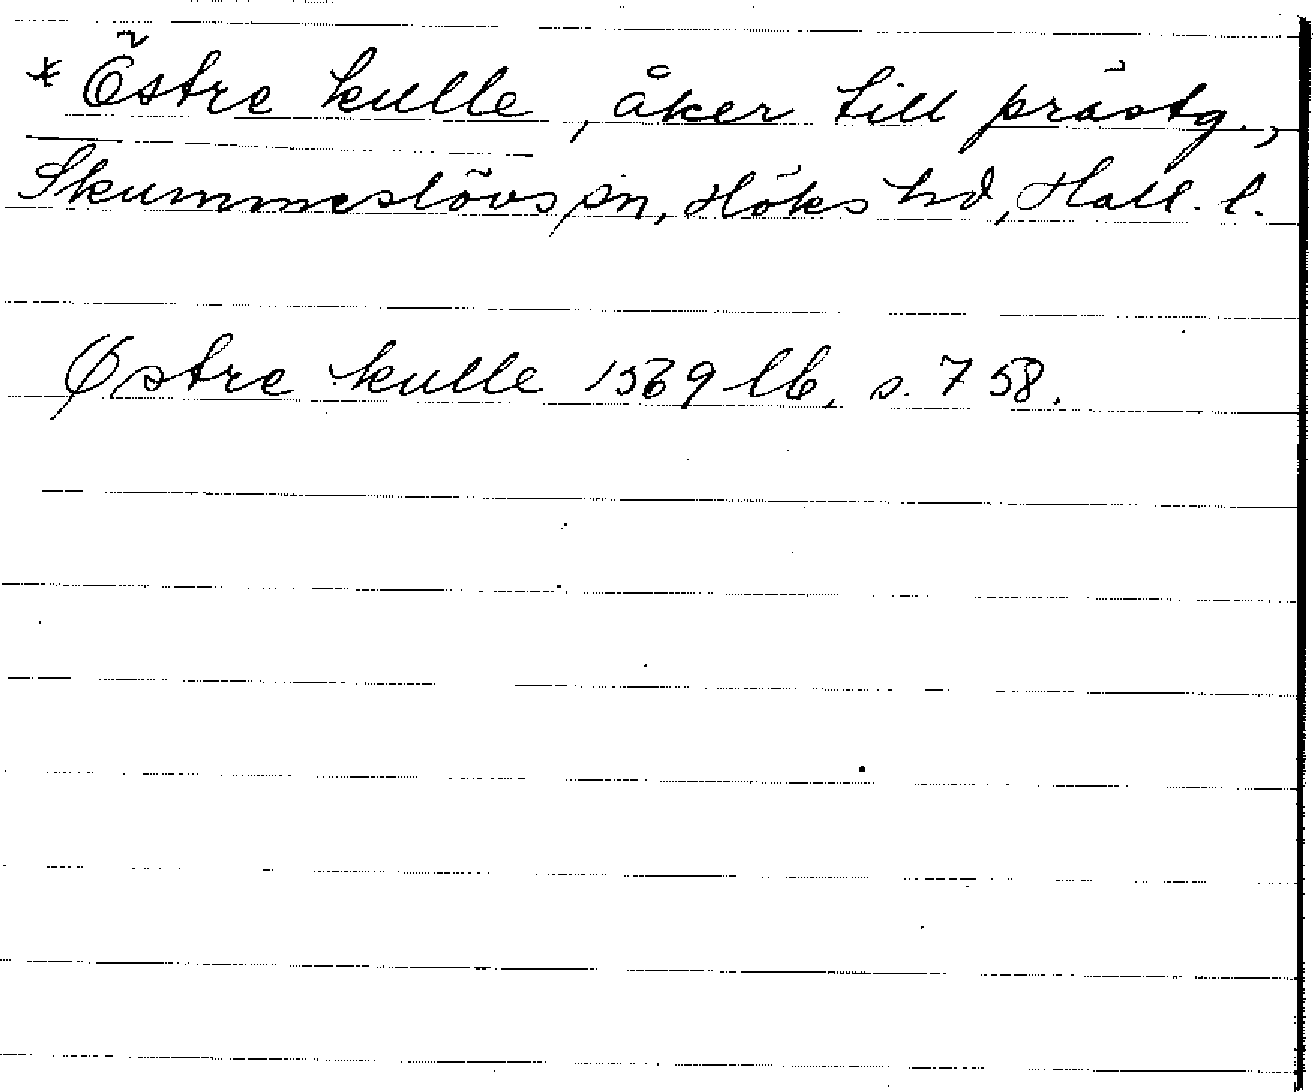 * Östre kulle, åker till prästg.,
Skummeslövs sn, Höks hd, Hall. l.
Østre kulle 1569 lb, s. 758.